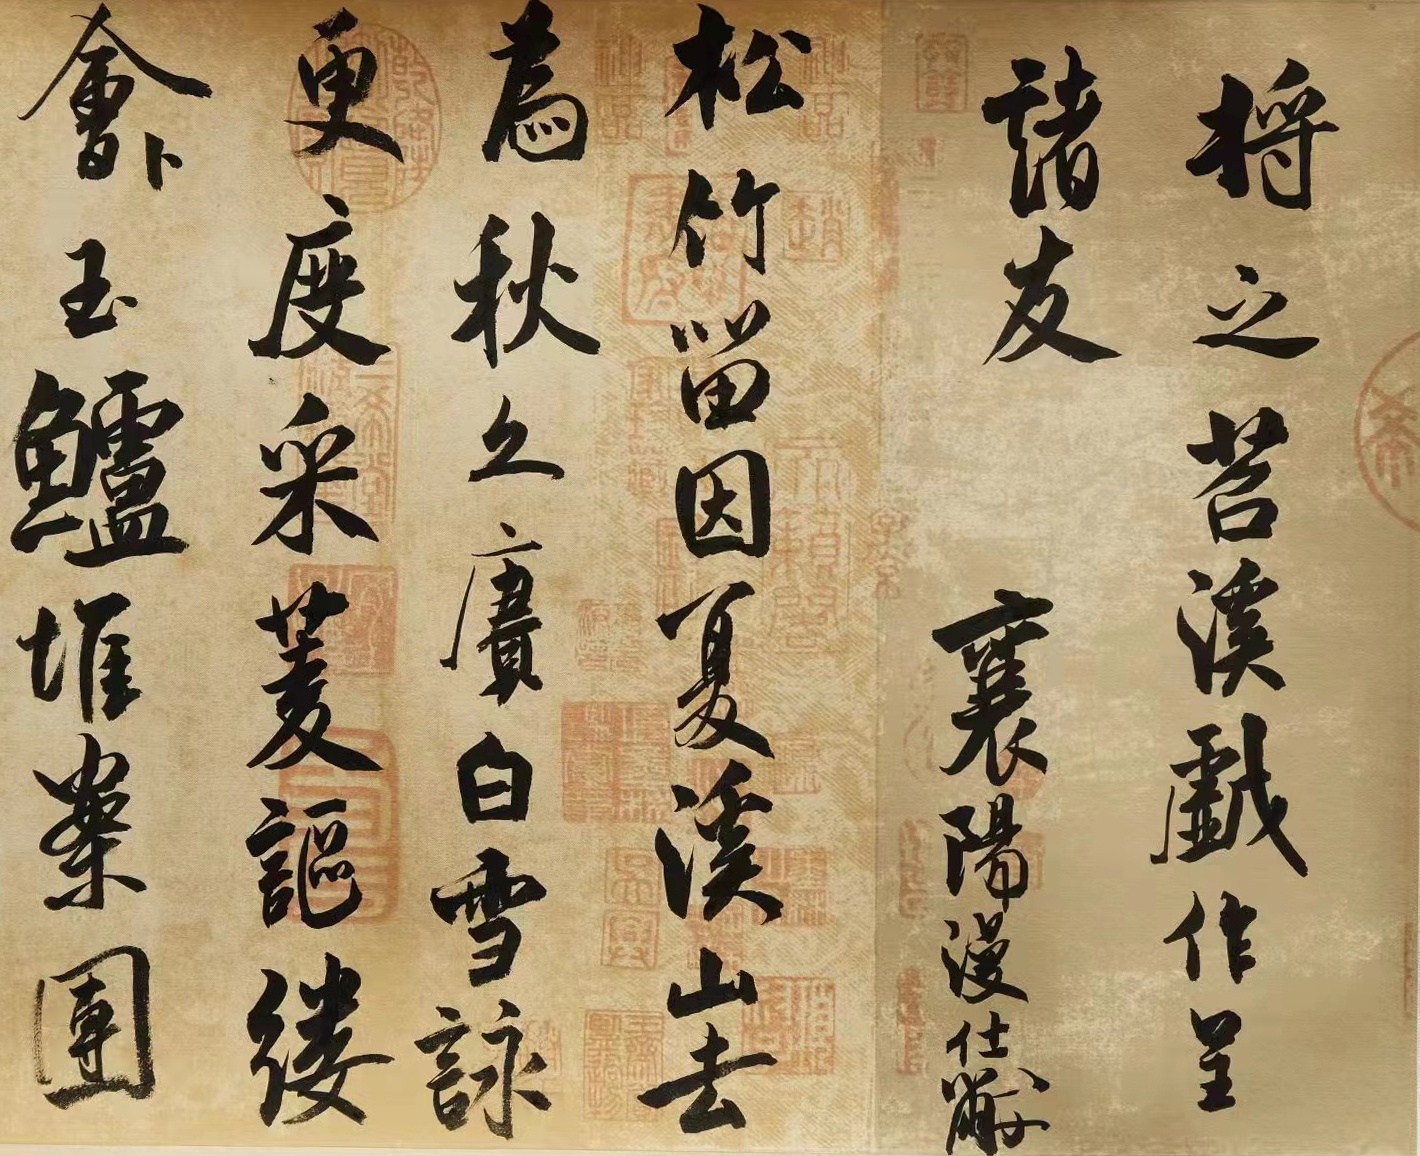 将之苕溪戯作呈
諸友
襄陽漫仕黻
松竹留因夏溪山去
為秋久賡白雪詠
更度采菱謳縷
會卜玉鱸堆案團